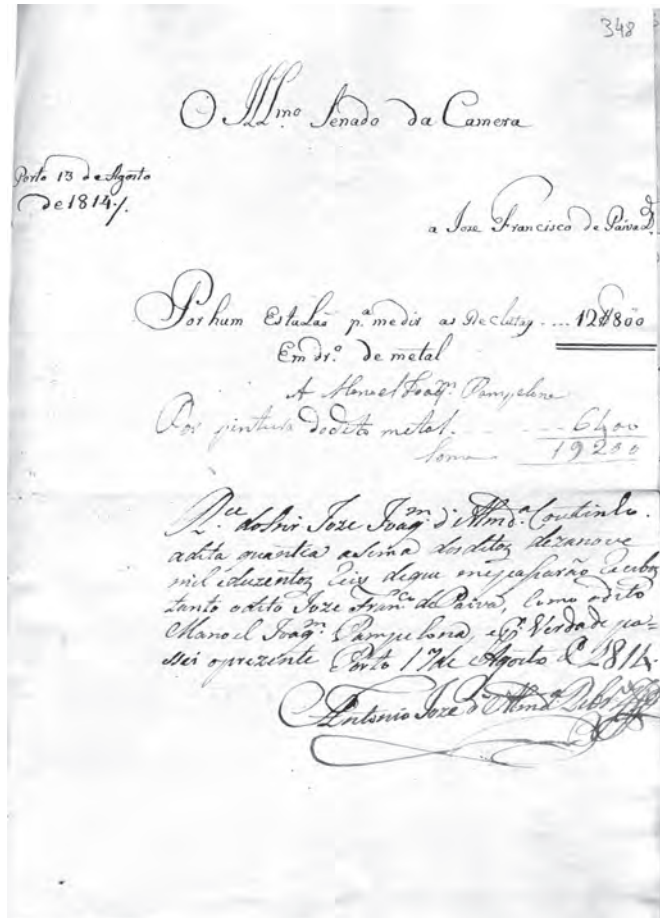 348
O Illmo Senado da Camera
Porto 13 de Agosto
de 1814
a Joze Francisco de Paiva D.
Por hum Estalão p.a medir as Reclutas .... 12$800
Em dr.o de metal
A Manoel Joaqm. Pampelona
Por pintura do dito metal. 6400
Soma 19200
R.ce do Snr Joze Joaqm. d'Almd.a Coutinho.
a dita quantia asima dos ditos dezanove
mil e duzentos reis de que me pasarão recibo
tanto o dito Joze Fran.co de Paiva, como o dito
Manoel Joaqm. Pampelona, e p.r Verdade pa-
sei o prezente Porto 17 de Agosto de 1814.
Antonio Joze d'Almd.a